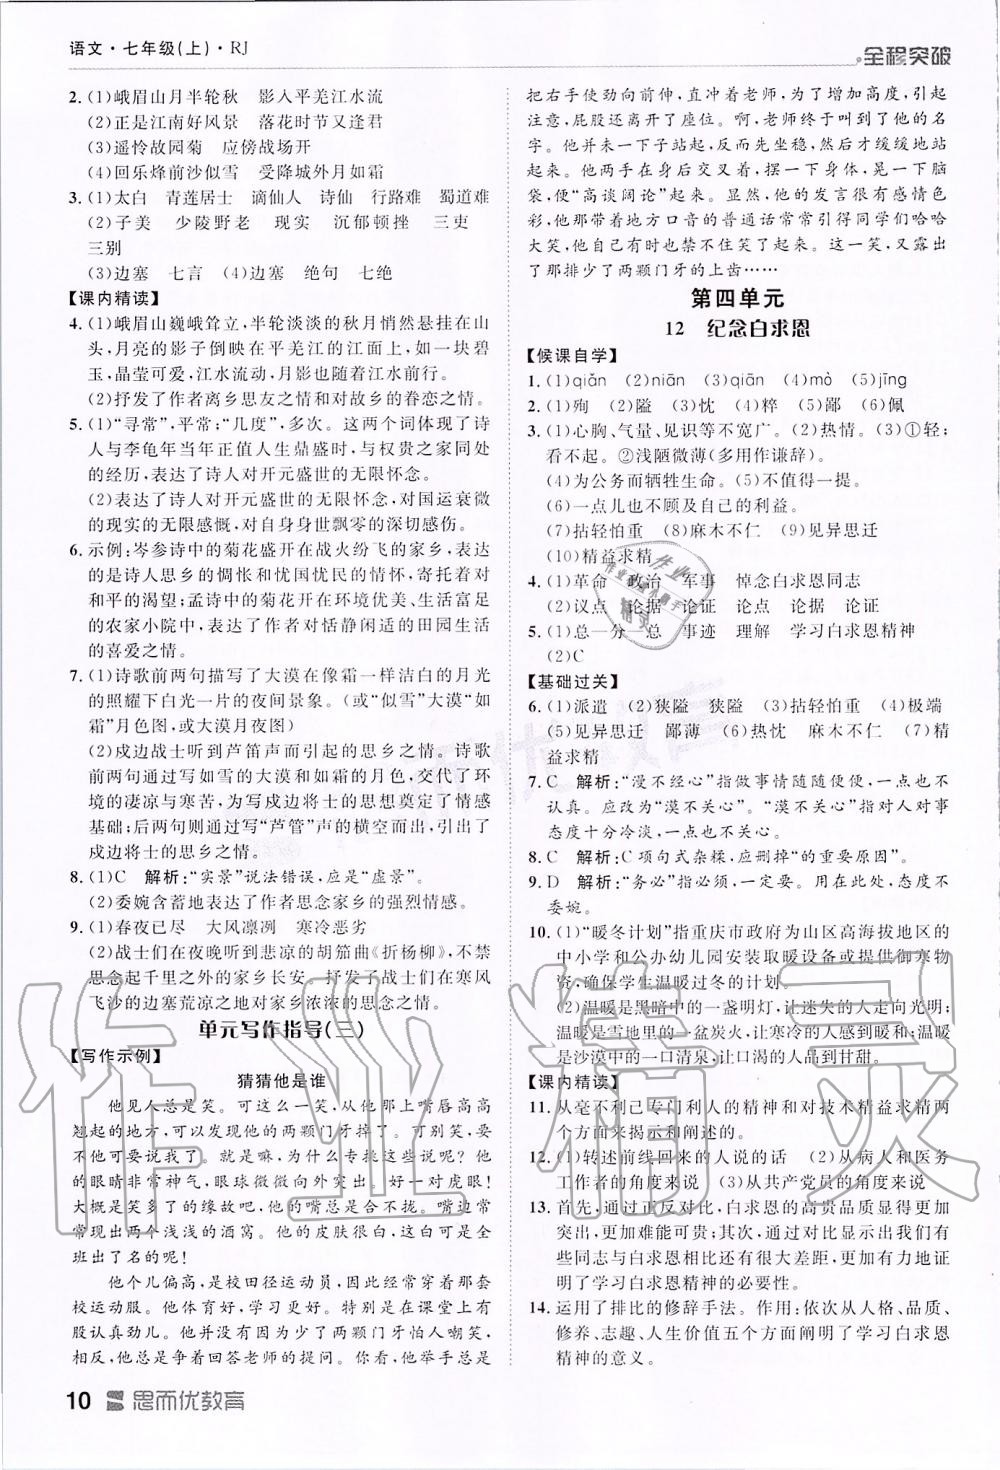 语文·七年级(上)·RJ
全程突破
2. (1)峨眉山月半轮秋 影入平羌江水流
(2)正是江南好风景 落花时节又逢君
(3)遥怜故园菊 应傍战场开
(4)回乐烽前沙似雪 受降城外月如霜
3. (1)太白 青莲居士 谪仙人 诗仙 行路难 蜀道难
(2)子美 少陵野老 现实 沉郁顿挫 三吏
三别
(3)边塞 七言 (4)边塞 绝句 七绝
【课内精读】
4. (1)峨眉山巍峨耸立,半轮淡淡的秋月悄然悬挂在山
头,月亮的影子倒映在平羌江的江面上,如一块碧
玉,晶莹可爱,江水流动,月影也随船儿载我前行。
(2)抒发了作者离乡思友之情和对故乡的眷恋之情。
5. (1)“寻常”,平常;“几度”,多次。这两个词体现了诗
人与李龟年当年正值人生鼎盛时,与权贵之家同处
的经历,表达了诗人对开元盛世的无限怀念。
(2)表达了诗人对开元盛世的无限怀念,对国运衰微
的现实的无限感慨,对自身身世飘零的深切感伤。
6. 示例:岑参诗中的菊花盛开在战火纷飞的家乡,表达
的是诗人思乡的惆怅和忧国忧民的情怀,寄托着对
和平的渴望;孟诗中的菊花开在环境优美、生活富足
的农家小院中,表达了作者对恬静闲适的田园生活
的喜爱之情。
7. (1)诗歌前两句描写了大漠在像霜一样洁白的月光
的照耀下白光一片的夜间景象。(或“似雪”大漠“如
霜”月色图,或大漠月夜图)
(2)戍边战士听到芦笛声而引起的思乡之情。诗歌
前两句通过描写如雪的大漠和如霜的月色,交代了环
境的凄凉与寒苦,为写戍边将士的思想奠定了情感
基础;后两句则通过写“芦管”声的横空而出,引出了
戍边将士的思乡之情。
8. (1)C 解析:“实景”说法错误,应是“虚景”。
(2)委婉含蓄地表达了作者思念家乡的强烈情感。
9. (1)春夜已尽 大风凛冽 寒冷恶劣
(2)战士们在夜晚听到悲凉的胡笳曲《折杨柳》,不禁
思念起千里之外的家乡长安,抒发了战士们在寒风
飞沙的边塞荒凉之地对家乡浓浓的思念之情。
单元写作指导(三)
【写作示例】
猜猜他是谁
他见人总是笑。可这么一笑,从他那上嘴唇高高
翘起的地方,可以发现他的两颗门牙掉了。得,再笑,
他可要说我了。就是嘛,为什么专挑这些讲呢?他
的眼睛非常神气,眼球微微向外突出,好一对虎眼!
大概是笑多了的缘故吧,他的嘴总是合不拢。咧开嘴
时,出现两个浅浅的酒窝。他的皮肤很白,白得在全
班出了名的呢!
他个儿偏高,是校田径运动员,因此经常穿着那套
校运动服。他体育好,学习更好。特别是在课堂上有
股认真劲儿。他并没有因为少了两颗门牙怕人嘲笑,
相反,他总是争着回答老师的提问。你看,他举手总是
把右手使劲向前伸,直冲着老师,为了增加高度,引起
注意,屁股都离开了座位。啊,老师终于叫到了他的名
字。他并未一下子站起来,而先坐稳,然后才缓缓地站
起来。他两手在身后交叉着,摆一下身体,晃一下脑
袋,便“高谈阔论”起来。显然,他的发言很有感情色
彩,他那带着地方口音的普通话常常引得同学们哈哈
大笑,他自己有时也禁不住笑了起来。这一笑,又露出
了那排少了两颗门牙的上齿……
第四单元
12 纪念白求恩
【候课自学】
1. (1)qiǎn (2)niān (3)qiān (4)mò (5)jīng
2. (1)殉 (2)隘 (3)忱 (4)粹 (5)鄙 (6)佩
3. (1)心胸、气量、见识等不宽广。(2)热情。(3)①轻;
看不起。②浅陋微薄(多用作谦辞)。
(4)为公务而牺牲生命。(5)不值得一提。
(6)一点儿也不顾及自己的利益。
(7)拈轻怕重 (8)麻木不仁 (9)见异思迁
(10)精益求精
4. (1)革命 政治 军事 悼念白求恩同志
(2)议点 论据 论证 论点 论据 论证
5. (1)总—分—总 事迹 理解 学习白求恩精神
(2)C
【基础过关】
6. (1)派遣 (2)狭隘 狭隘 (3)拈轻怕重 (4)极端
(5)见异思迁 鄙薄 (6)热忱 麻木不仁 (7)精
益求精
7. C 解析:“漫不经心”指做事情随随便便,一点也不
认真。应改为“漠不关心”。“漠不关心”指对人对事
态度十分冷淡,一点也不关心。
8. C 解析:C项句式杂糅,应删掉“的重要原因”。
9. D 解析:“务必”指必须,一定要。用在此处,态度不
委婉。
10. (1)“暖冬计划”指重庆市政府为山区高海拔地区的
中小学和公办幼儿园安装取暖设备或提供御寒物
资,确保学生温暖过冬的计划。
(2)温暖是黑暗中的一盏明灯,让迷失的人走向光明;
温暖是雪地里的一盆炭火,让寒冷的人感到暖和;温
暖是沙漠中的一口清泉,让口渴的人品到甘甜。
【课内精读】
11. 从毫不利己专门利人的精神和对技术精益求精两
个方面来揭示和阐述的。
12. (1)转述前线回来的人说的话 (2)从病人和医务
工作者的角度来说 (3)从共产党员的角度来说
13. 首先,通过正反对比,白求恩的高贵品质显得更加
突出,更加难能可贵;其次,通过对比显示出我们有
些同志与白求恩相比还有很大差距,更加有力地证
明了学习白求恩精神的必要性。
14. 运用了排比的修辞手法。作用:依次从人格、品质、
修养、志趣、人生价值五个方面阐明了学习白求恩
精神的意义。
10 思而优教育
作业精灵